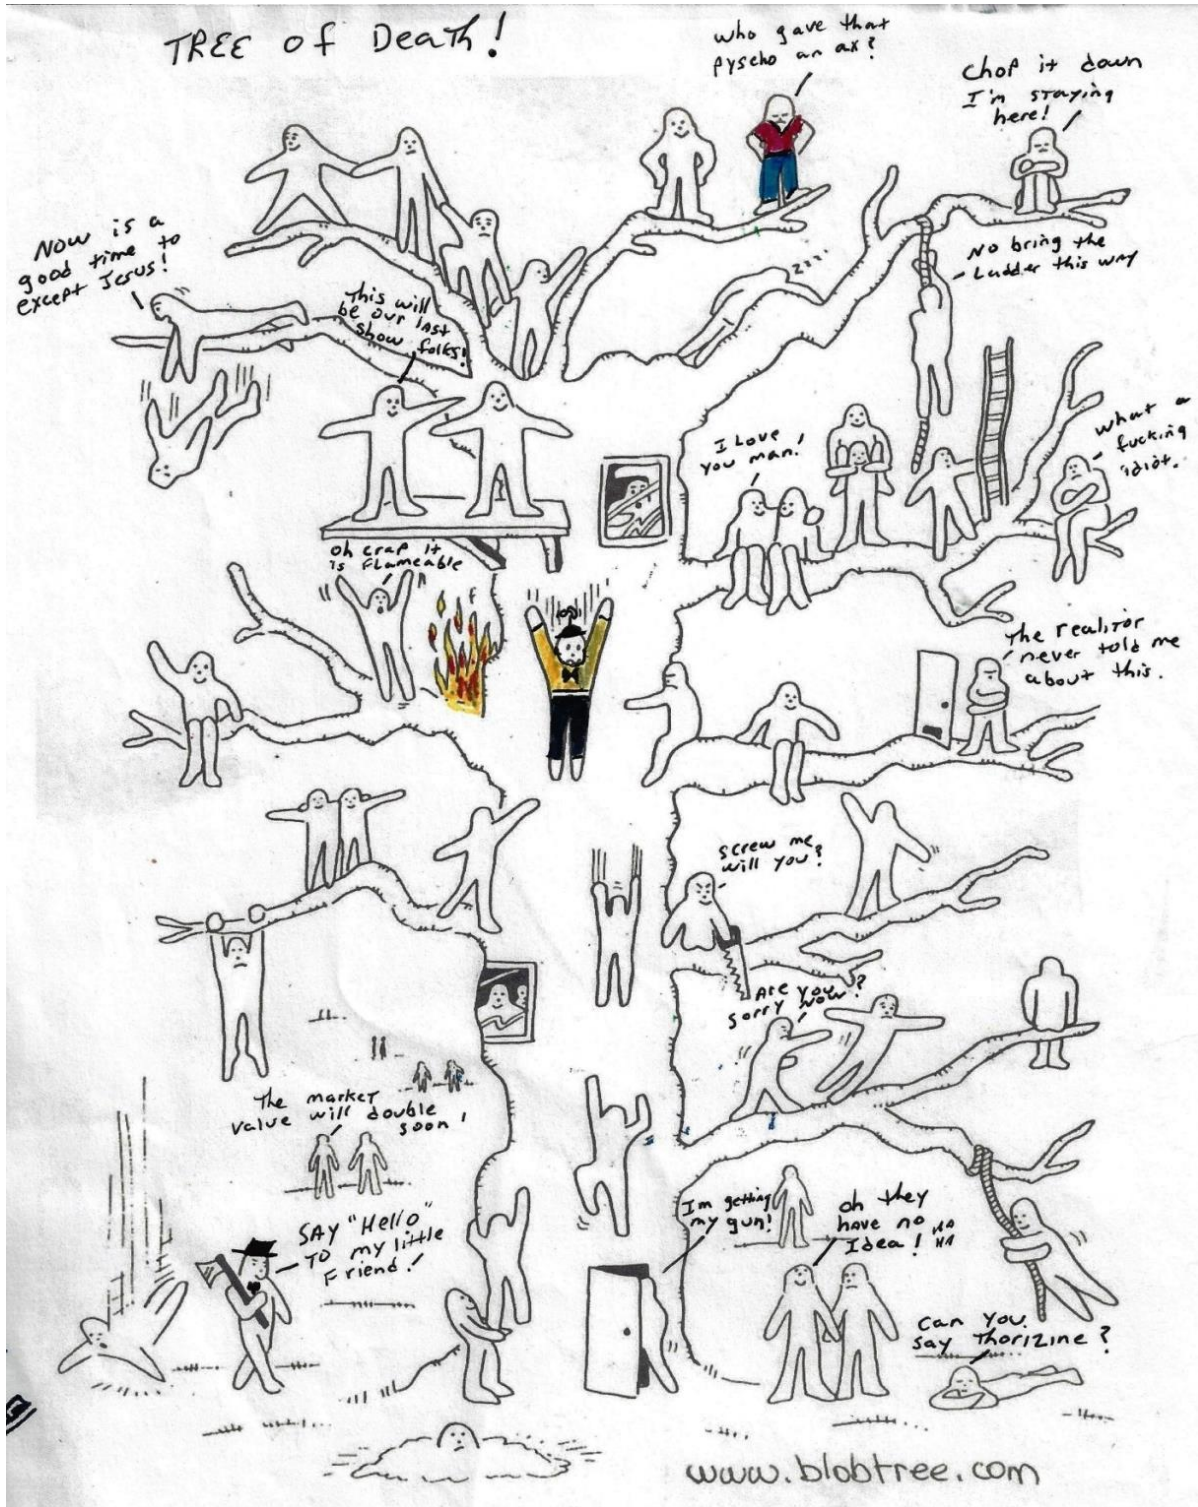 TREE of Death!
who gave that
pyscho an ax?
Chop it down
I'm staying
here!
Now is a
good time to
except Jesus!
No bring the
Ladder this way
zzzz
This will
be our last
show folks!
what a
fucking
idiot.
I Love
you man!
oh crap it
is Flameable
The realitor
never told me
about this.
screw me
will you?
Are you
sorry now?
The market
value will double
soon!
SAY "Hello"
TO my little
Friend!
I'm getting
my gun!
oh they
have no
Idea! HA
HA
Can you
say Thorizine?
www.blobtree.com